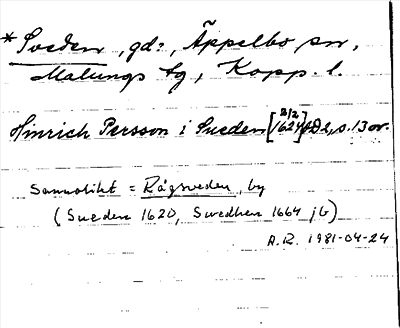 * Sveden, gd?, Äppelbo sn,
Malungs tg, Kopp. l.
Hinrich Persson i Sueden [2/2 1624] ÄD 2, s. 13 ov.
Sannolikt = Rågsveden, by
(Sueden 1620, Swedhen 1664 jb)
A.R. 1981-04-24